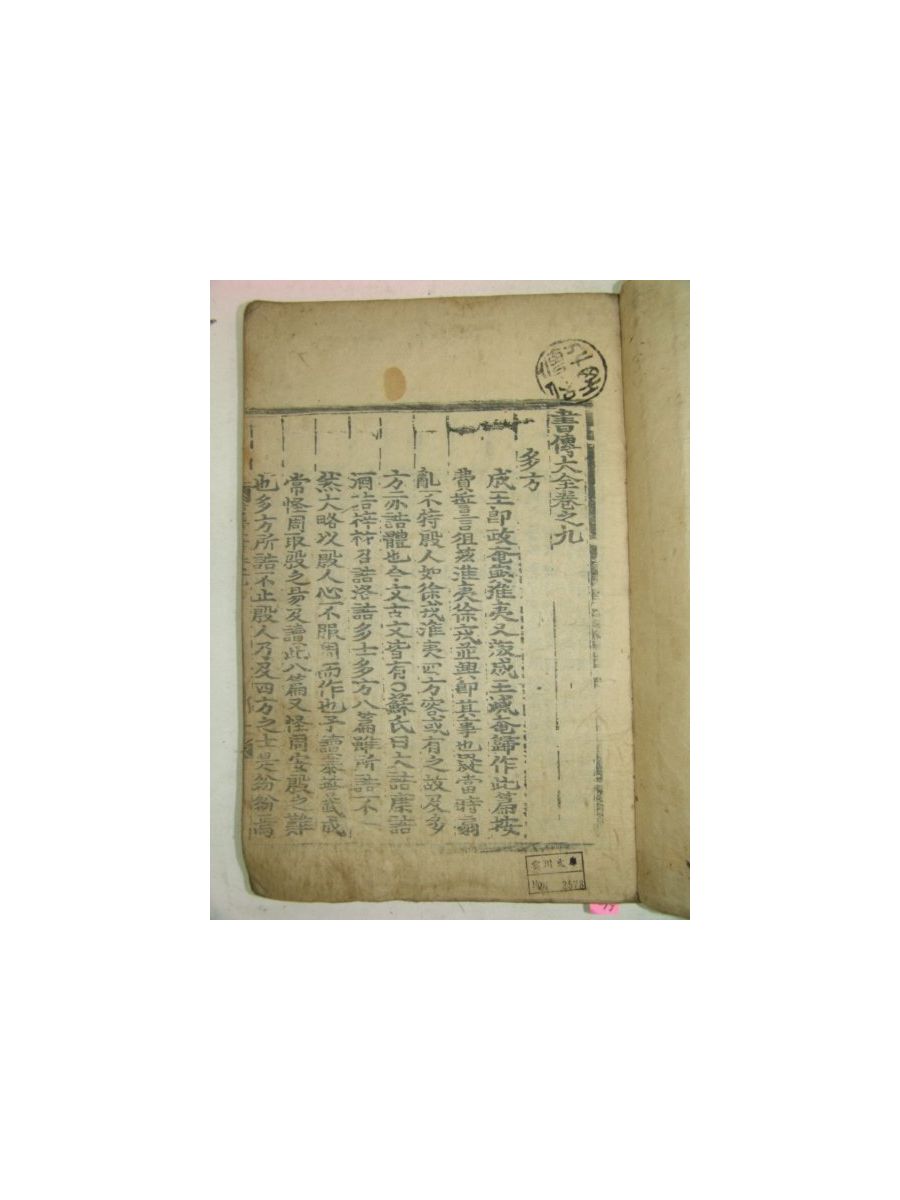 書傳大全卷之九
多方
成王卽政奄與淮夷又叛成王滅奄歸作此篇按
費誓言徂玆淮夷徐戎並興卽其事也疑當時扇
亂不特殷人如徐戎淮夷四方容或有之故及多
方亦誥體也今文古文皆有○蘇氏曰大誥康誥
酒誥梓材召誥洛誥多士多方八篇雖所誥不一
然大略以殷人心不服周而作也予讀泰誓武成
常怪周取殷之易及讀此八篇又怪周安殷之難
也多方所誥不止殷人乃及四方之士是紛紛焉
文庫
2578